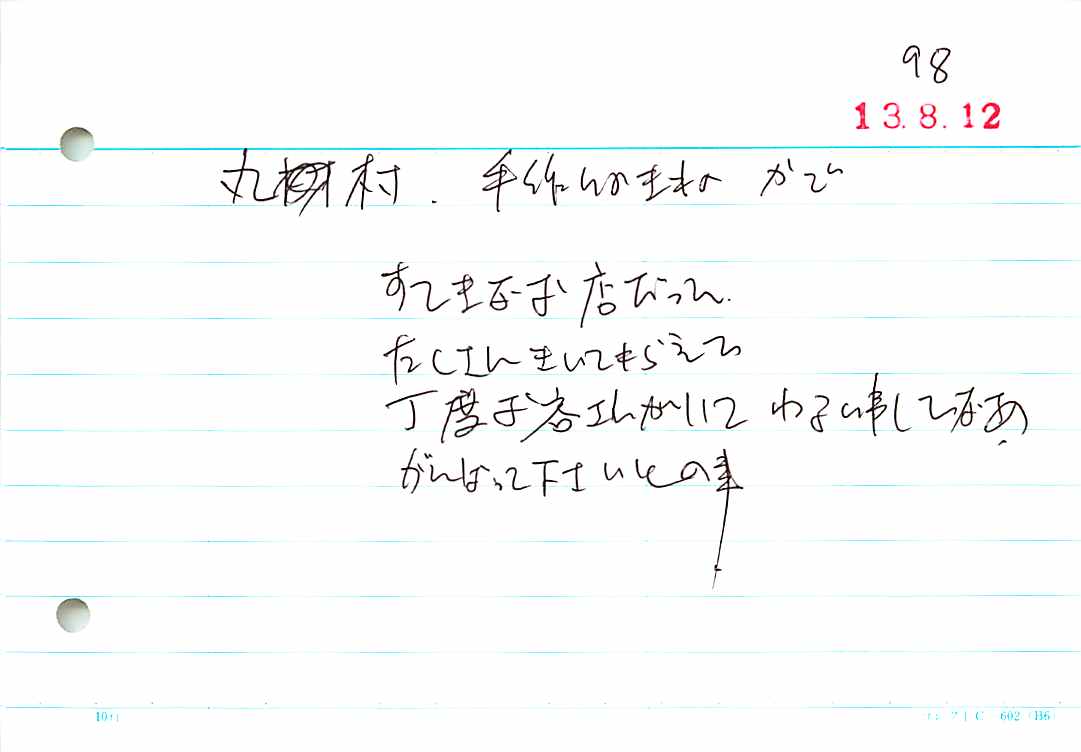 98
13.8.12
丸村村. 手作りのまねの かで
すてきなお店だって.
たくさんきいてもらえて
丁度お客さんがいて わるい事してなあ.
がんばって下さいとの事
10行
C 602 (H6)